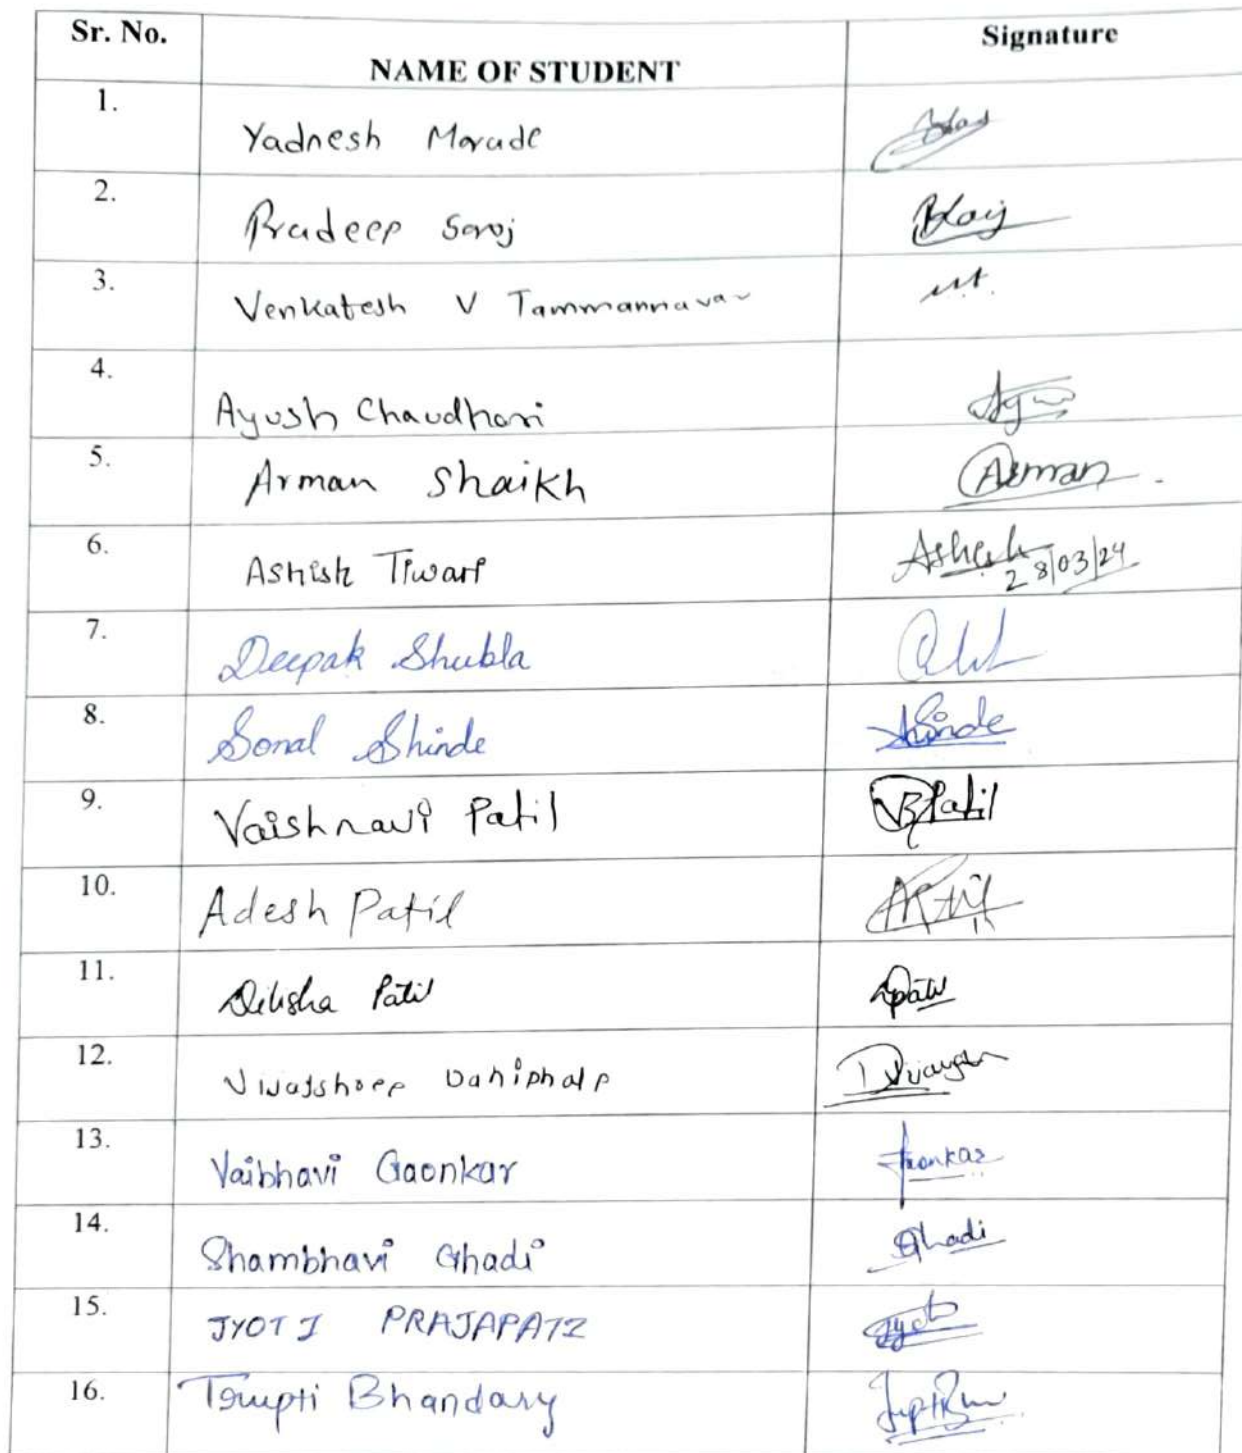 Sr. No. NAME OF STUDENT Signature
1. Yadnesh Marade
2. Pradeep Saroj
3. Venkatesh V Tammannavar
4. Ayush Chaudhari
5. Arman Shaikh Arman
6. Ashish Tiwari Ashish 28/03/24
7. Deepak Shukla
8. Sonal Shinde Shinde
9. Vaishnavi Patil VBPatil
10. Adesh Patil APatil
11. Patil DPatil
12.
13. Vaibhavi Gaonkar Gaonkar
14. Shambhavi Ghadi Ghadi
15. JYOTI PRAJAPATI Jyoti
16. Trupti Bhandary